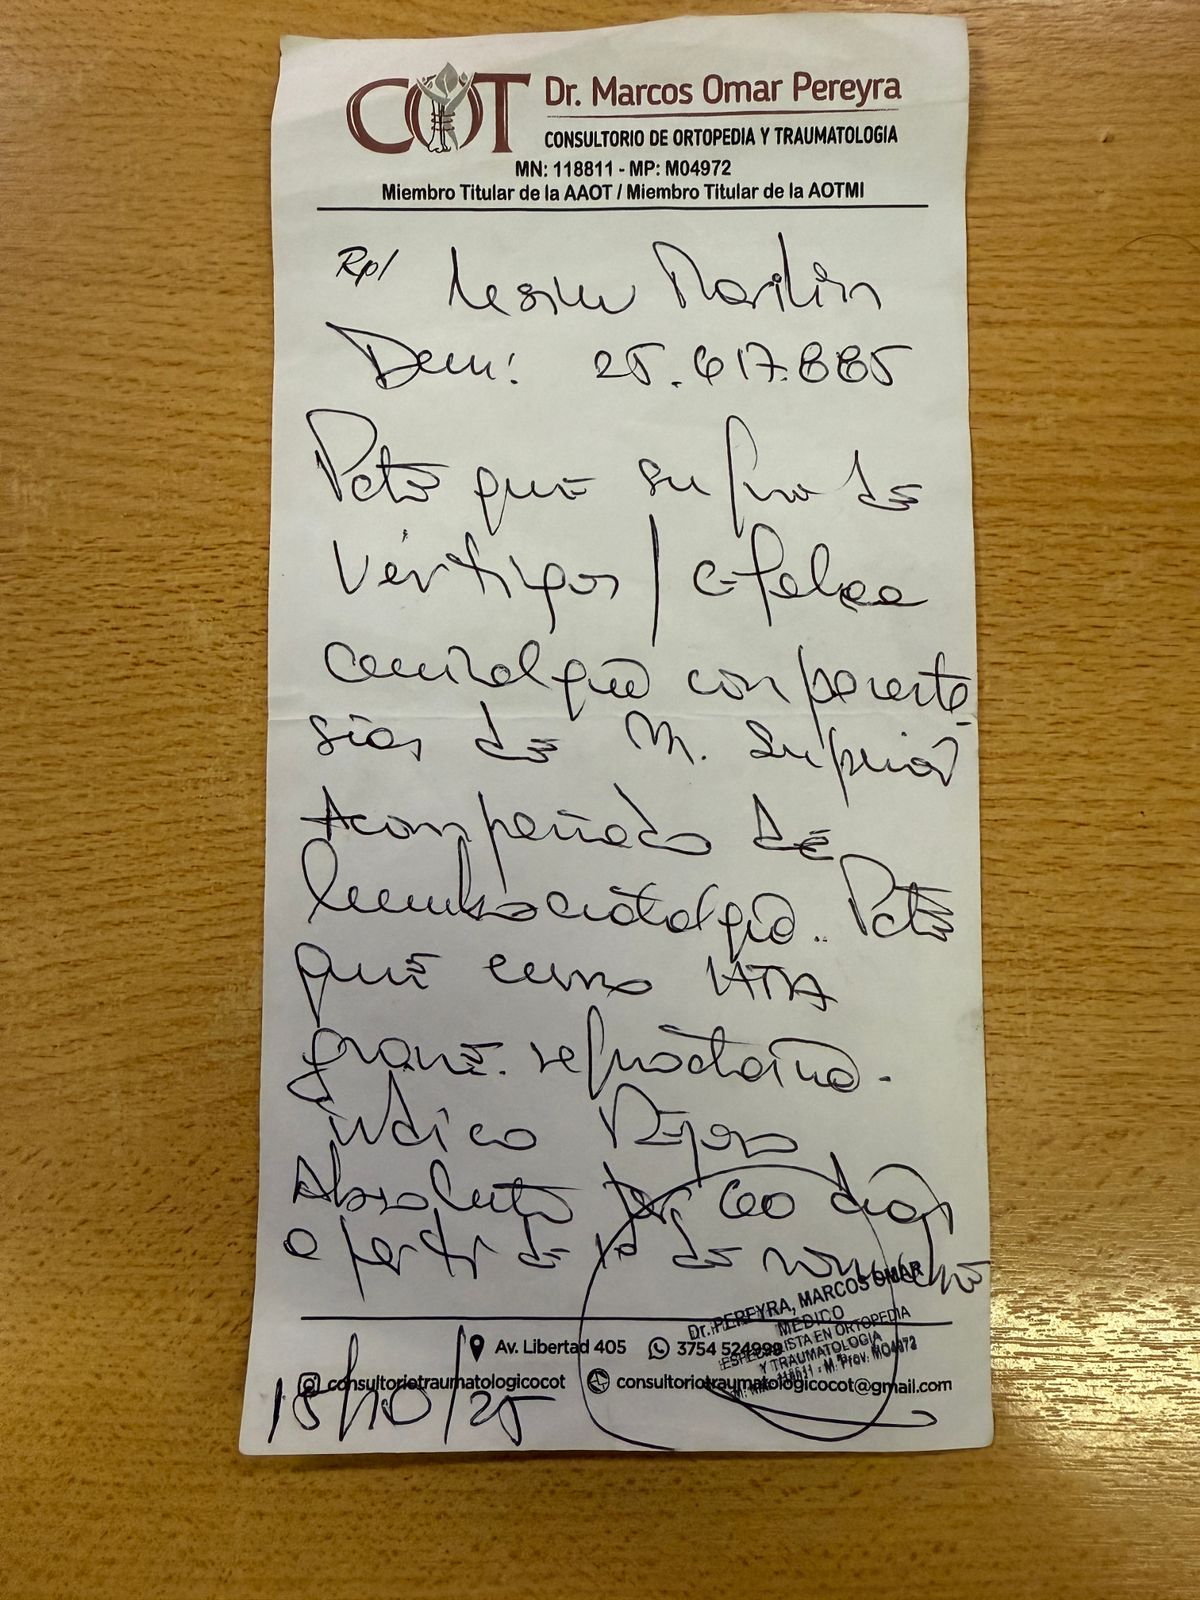 COT Dr. Marcos Omar Pereyra
CONSULTORIO DE ORTOPEDIA Y TRAUMATOLOGIA
MN: 118811 - MP: M04972
Miembro Titular de la AAOT / Miembro Titular de la AOTMI
Rp/ Marilin
25.617.885
Pcte que sufre de
vértigos / cefalea
cervicalgia con pareste
sias de M. Superior
Acompañado de
lumbociatalgia. Pcte
que curso HTA
grave. refractaria.
indico Reposo
Absoluto por 60 dias
a partir de de
Dr. PEREYRA, MARCOS OMAR
MEDICO
ESPECIALISTA EN ORTOPEDIA
Y TRAUMATOLOGIA
M. Prov. MO4972
Av. Libertad 405 3754 524999
consultoriotraumatologicocot consultoriotraumatologicocot@gmail.com
18/10/25